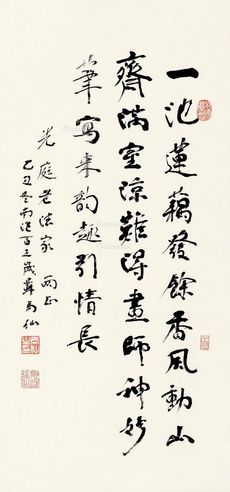 一池蓮藕發餘香風動山
齋滿室涼難得畫師神妙
筆寫來韵趣引情長
光庭老法家 兩正
乙丑冬南滙百三歲蘇局仙